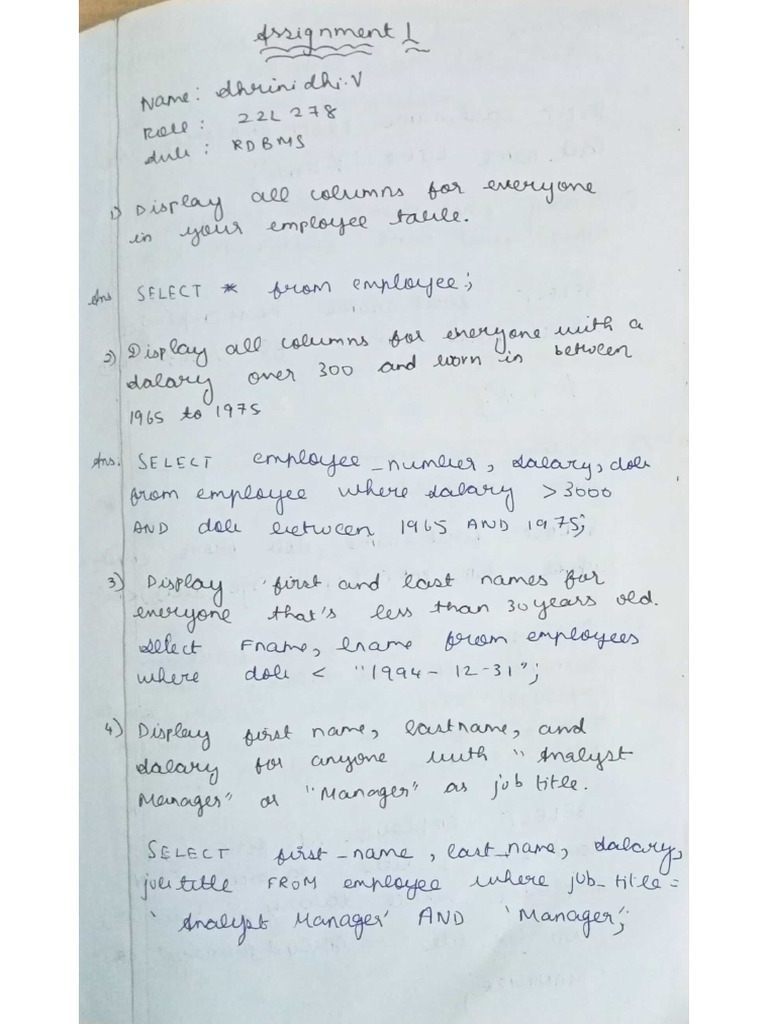 Assignment 1
Name: Dhrinidhi.V
Roll: 22L278
Sub: RDBMS
1) Display all columns for everyone
in your employee table.
Ans SELECT * from employee;
2) Display all columns for everyone with a
salary over 300 and born in between
1965 to 1975
Ans. SELECT employee_number, salary, dob
from employee where salary > 3000
AND dob between 1965 AND 1975;
3) Display first and last names for
everyone that's less than 30 years old.
Select Fname, lname from employees
where dob < "1994-12-31";
4) Display first name, lastname, and
salary for anyone with "Analyst
Manager" or "Manager" as job title.
SELECT first_name, last_name, salary,
job title FROM employee where job_title =
'Analyst Manager' AND 'Manager';